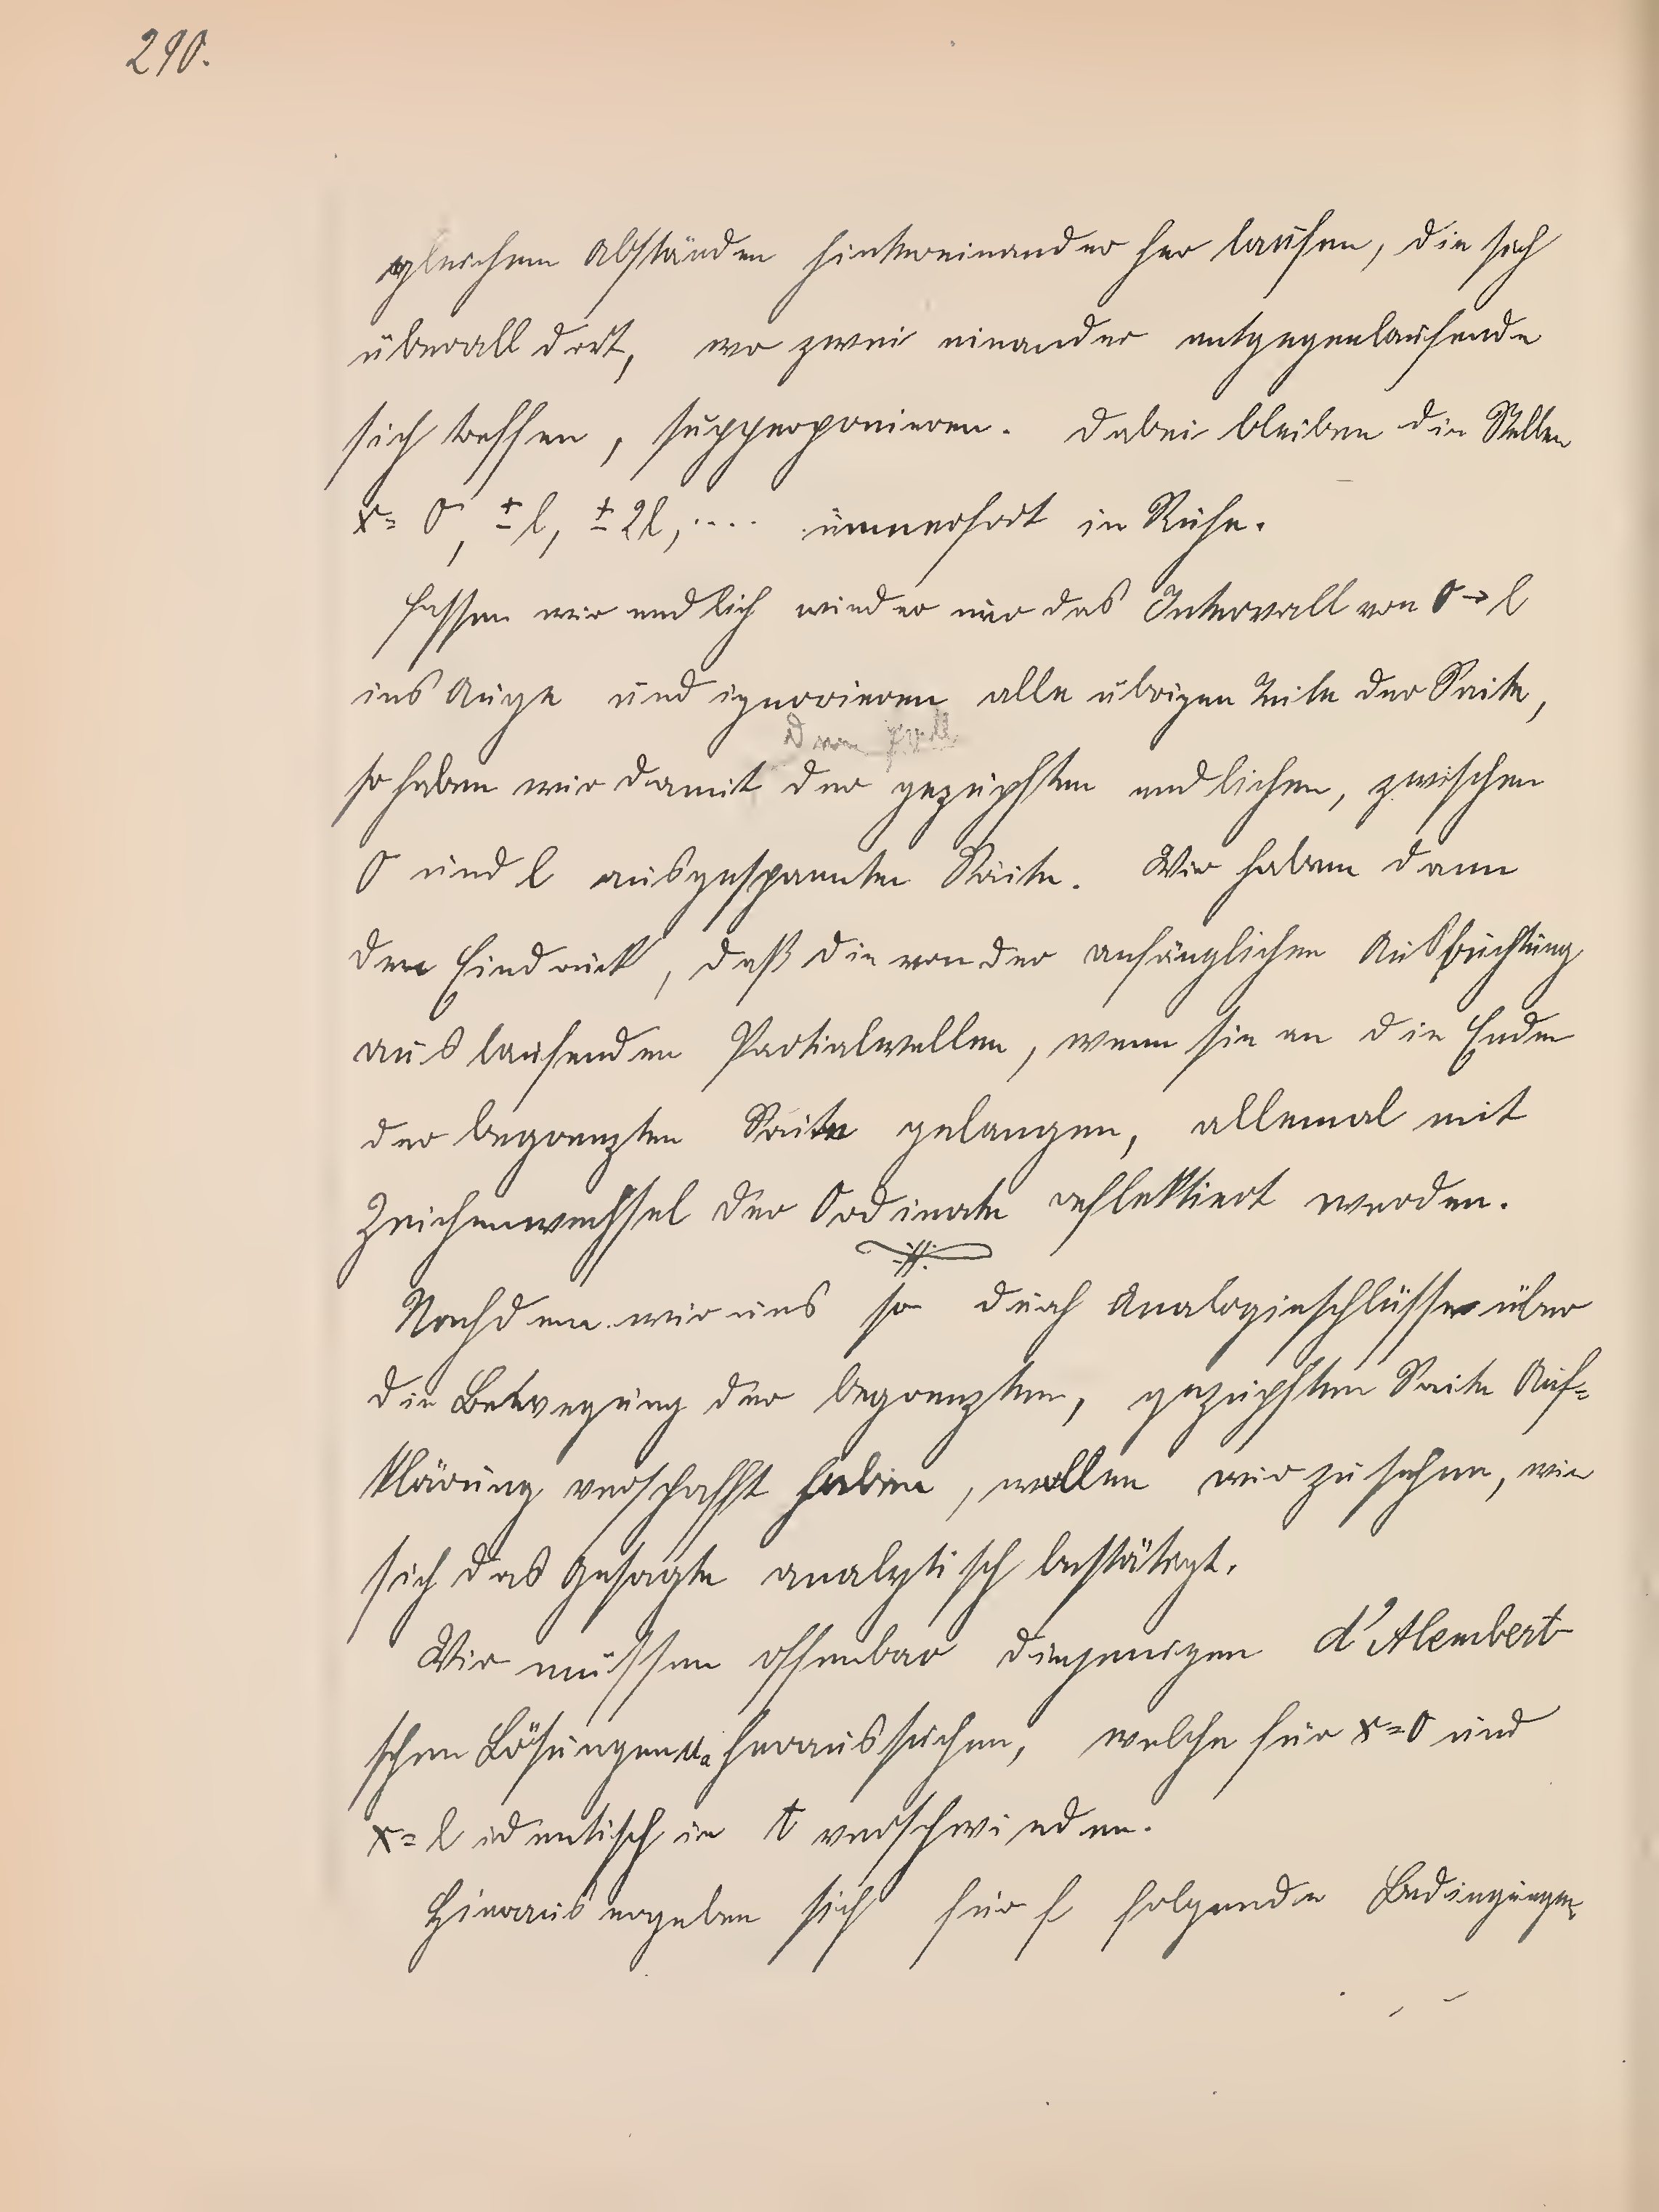 290.
gleichen Abständen hintereinander her laufen, die sich
überall dort, wo zwei einander entgegenlaufende
sich treffen, supperponieren. Dabei bleiben die Stellen
x = 0, ± l, ± 2l, .... immerfort in Ruhe.
Fassen wir endlich wieder nur das Intervall von 0 → l
ins Auge und ignorieren alle übrigen Teile der Saite,
den Fall
so haben wir damit der gezupften endlichen, zwischen
0 und l ausgespannten Saite. Wir haben dann
den Eindruck, daß die von der anfänglichen Ausbuchtung
auslaufenden Partialwellen, wenn sie an die Enden
der begrenzten Saite gelangen, allemal mit
Zeichenwechsel der Ordinate reflektiert werden.
Nachdem wir uns so durch Analogieschlüsse über
die Bewegung der begrenzten, gezupften Saite Auf=
klärung verschafft haben, wollen wir zusehen, wie
sich das Gesagte analytisch bestätigt.
Wir müssen offenbar diejenigen d'Alembert
schen Lösungen u heraussuchen, welche für x = 0 und
x = l identisch in t verschwinden.
Hieraus ergeben sich für f folgende Bedingungen